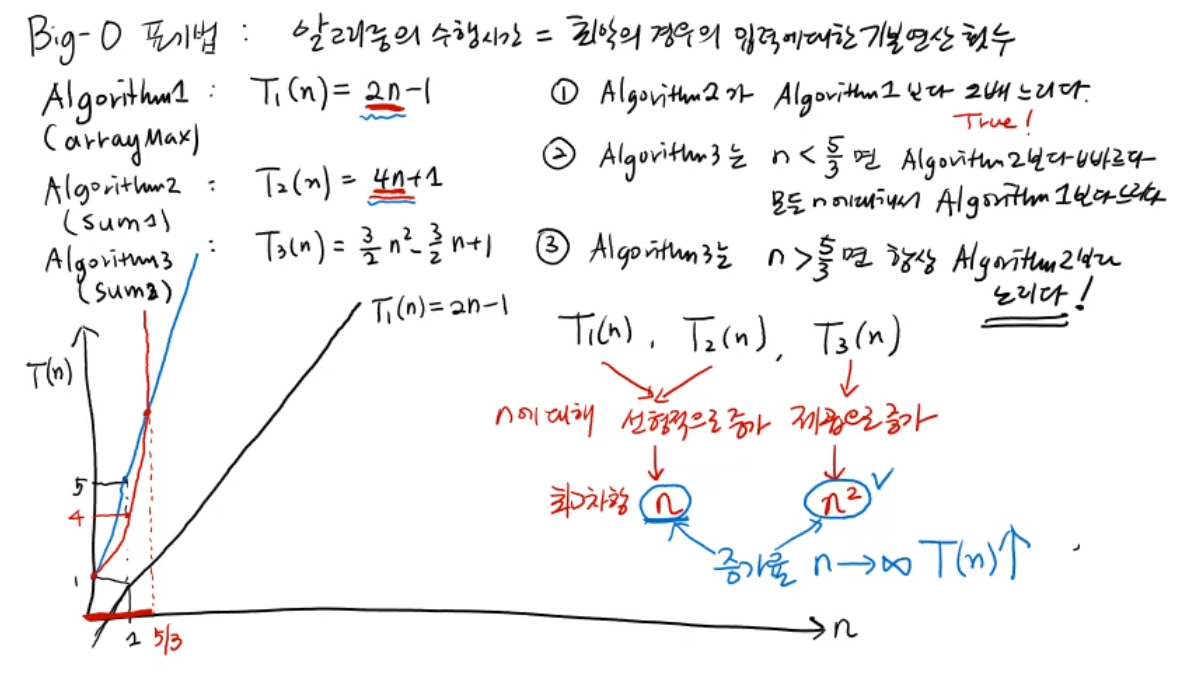 Big-O 표기법 : 알고리즘의 수행시간 = 최악의 경우의 입력에 대한 기본연산 횟수
Algorithm1 : T₁(n) = 2n-1
(arrayMax)
Algorithm2 : T₂(n) = 4n+1
(sum1)
Algorithm3 : T₃(n) = 3/2 n² - 3/2 n+1
(sum2)
① Algorithm2가 Algorithm1보다 2배 느리다.
True!
② Algorithm3는 n < 5/3 면 Algorithm2보다 빠르다
모든 n에 대해서 Algorithm1보다 느리다
③ Algorithm3는 n > 5/3 면 항상 Algorithm2보다
느리다!
T₁(n) = 2n-1
T(n)
5
4
1
1 5/3
n
T₁(n), T₂(n), T₃(n)
n에 대해 선형적으로 증가 제곱으로 증가
최고차항 n n²
증가율 n→∞ T(n)↑